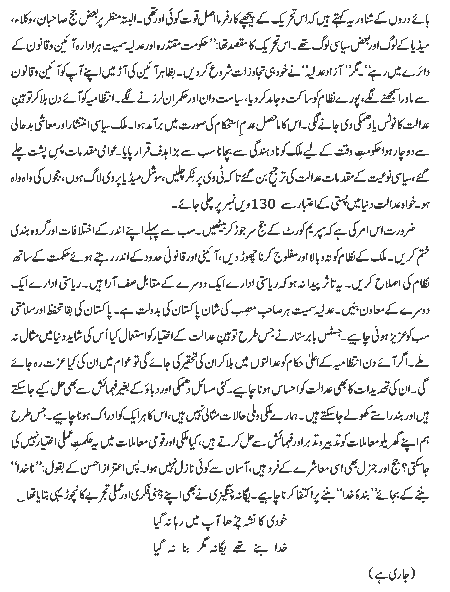 ہائے دروں کے شناور یہ کہتے ہیں کہ اس تحریک کے پیچھے کارفرما اصل قوت کوئی اور تھی۔ البتہ منظر پر بعض جج صاحبان، وکلاء،
میڈیا کے لوگ اور بعض سیاسی لوگ تھے۔ اس تحریک کا مقصد تھا: ’’حکومت مقتدرہ اور عدلیہ سمیت ہر ادارہ آئین و قانون کے
دائرے میں رہے‘‘۔ مگر ’’آزاد عدلیہ‘‘ نے خود ہی تجاوزات شروع کردیں۔ بظاہر آئین کی آڑ میں اپنے آپ کو آئین و قانون
سے ماورا سمجھنے لگے، پورے نظام کو ساکت و جامد کردیا، سیاست دان اور حکمران لرزنے لگے۔ انتظامیہ کو آئے دن بلا کر توہینِ
عدالت کا نوٹس یا دھمکی دی جانے لگی۔ اس کا ماحصل عدمِ استحکام کی صورت میں برآمد ہوا۔ ملک سیاسی انتشار اور معاشی بدحالی
سے دوچار ہوا حکومتِ وقت کے لیے ملک کو نادہندگی سے بچانا سب سے بڑا ہدف قرار پایا۔ عوامی مقدمات پسِ پشت چلے
گئے، سیاسی نوعیت کے مقدمات عدالت کی ترجیح بن گئے تاکہ ٹی وی پر ٹِکر چلیں، سوشل میڈیا پر وی لاگ ہوں، ججوں کی واہ واہ
ہو۔ خواہ عدالت دنیا میں پستی کے اعتبار سے 130 ویں نمبر پر چلی جائے۔
ضرورت اس امر کی ہے کہ سپریم کورٹ کے جج سر جوڑ کر بیٹھیں۔ سب سے پہلے اپنے اندر کے اختلافات اور گروہ بندی
ختم کریں۔ ملک کے نظام کو تہ و بالا اور مفلوج کرنا چھوڑ دیں، آئینی اور قانونی حدود کے اندر رہتے ہوئے حکمت کے ساتھ
نظام کی اصلاح کریں۔ یہ تاثر پیدا نہ ہو کہ ریاستی ادارے ایک دوسرے کے مقابل صف آرا ہیں۔ ریاستی ادارے ایک
دوسرے کے معاون بنیں۔ عدلیہ سمیت ہر صاحبِ منصب کی شان پاکستان کی بدولت ہے۔ پاکستان کی بقا تحفظ اور سلامتی
سب کو عزیز ہونی چاہیے۔ جسٹس بابر ستار نے جس طرح توہینِ عدالت کے اختیار کو استعمال کیا اُس کی شاید دنیا میں مثال نہ
ملے۔ اگر آئے دن انتظامیہ کے اعلیٰ حکام کو عدالتوں میں بلا کر ان کی تحقیر کی جائے گی تو عوام میں ان کی کیا عزت رہ جائے
گی۔ ان کی تحدیدات کا بھی عدالت کو احساس ہونا چاہیے۔ کئی مسائل دھمکی اور دباؤ کے بغیر فہمائش سے بھی حل کیے جاسکتے
ہیں اور بند راستے کھولے جاسکتے ہیں۔ ہمارے ملکی و ملی حالات مثالی نہیں ہیں، اس کا ہر ایک کو ادراک ہونا چاہیے۔ جس طرح
ہم اپنے گھریلو معاملات کو تدبیر و تدبر اور فہمائش سے حل کرتے ہیں، کیا ملکی اور قومی معاملات میں یہ حکمتِ عملی اختیار نہیں کی
جاسکتی؟ جج اور جنرل بھی اسی معاشرے کے فرد ہیں، آسمان سے کوئی نازل نہیں ہوا۔ پس اعتزاز احسن کے بقول: ’’ناخدا‘‘
بننے کے بجائے ’’بندۂ خدا‘‘ بننے پر اکتفا کرنا چاہیے۔ یگانہ چنگیزی نے بھی اپنے ذہنی فکری اور عملی تجربے کا نچوڑ یہی بتایا تھا۔
خودی کا نشہ چڑھا آپ میں رہا نہ گیا
خدا بنے تھے یگانہ مگر بنا نہ گیا
(جاری ہے)